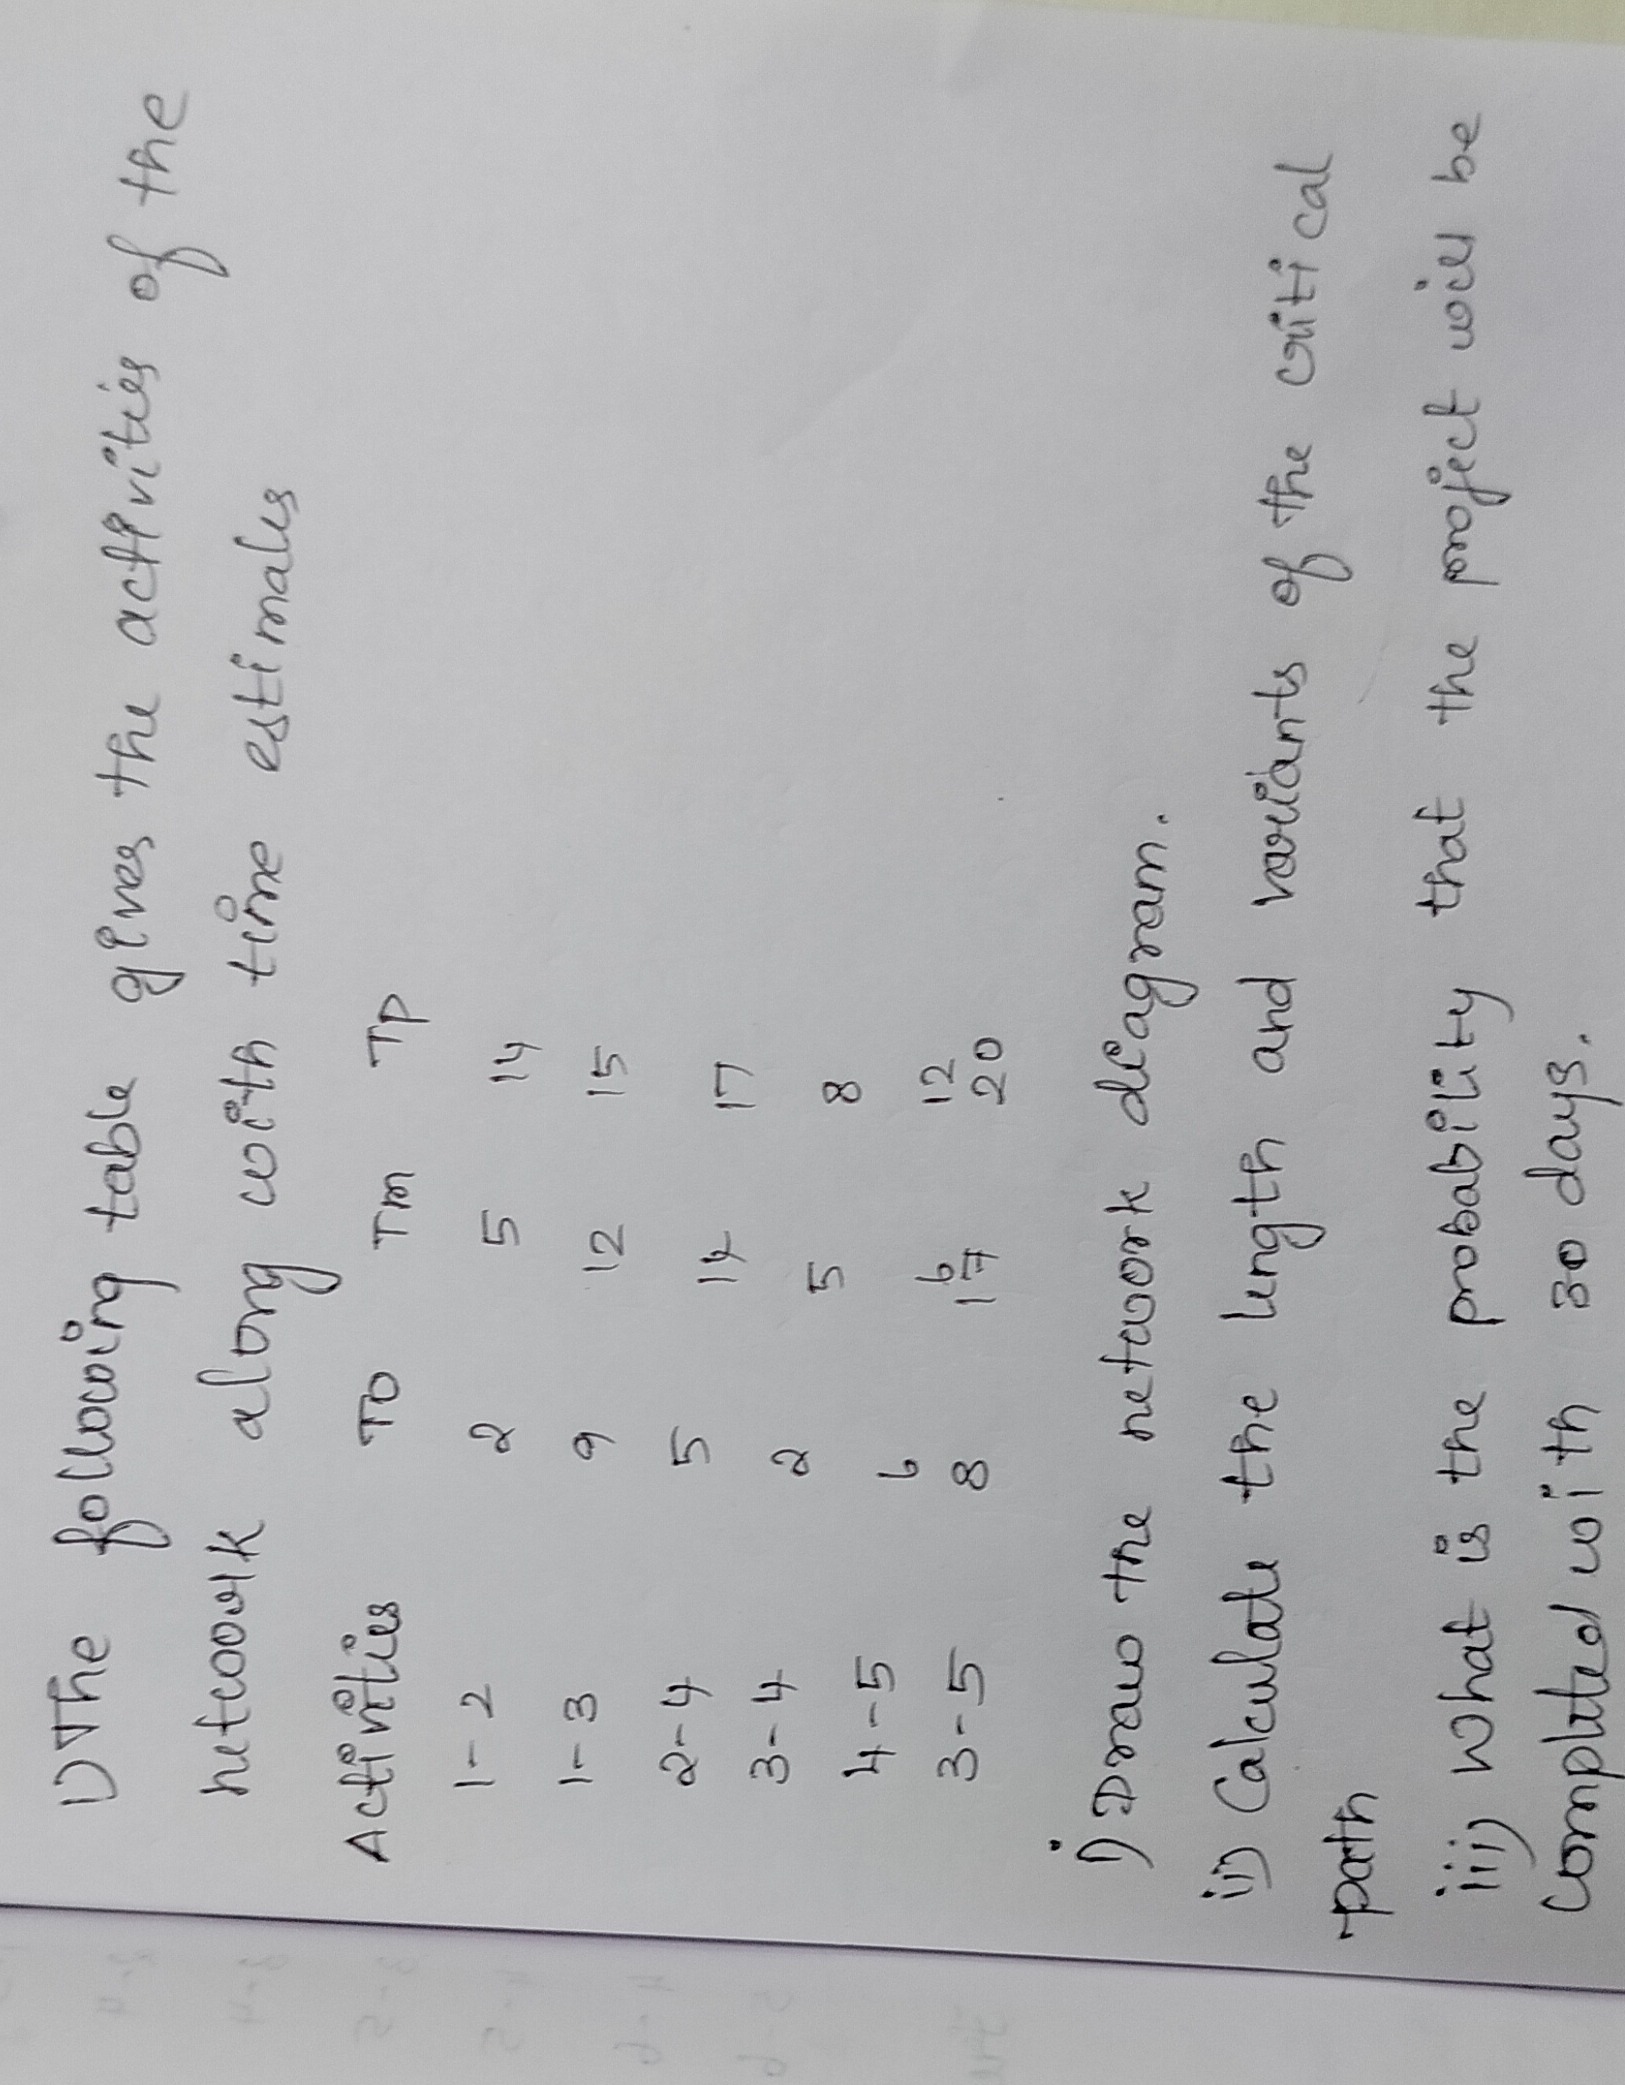 1) The following table gives the activities of the
network along with time estimates
Activities To Tm Tp
1-2 2 5 14
1-3 9 12 15
2-4 5 14 17
3-4 2 5 8
4-5 6 6 12
3-5 8 17 20
i) Draw the network diagram.
ii) Calculate the length and variants of the critical
path
iii) What is the probability that the project will be
completed with 30 days.